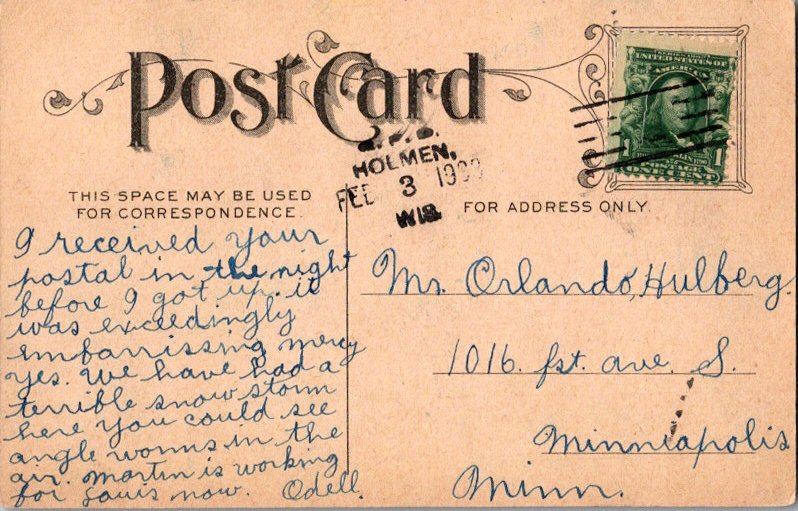 Post Card
SERIES 1902
UNITED STATES OF
AMERICA
1
ONE CENT
HOLMEN,
FEB 3 190
WIS.
THIS SPACE MAY BE USED
FOR CORRESPONDENCE.
FOR ADDRESS ONLY.
I received your
postal in the night
before I got up. it
was exceedingly
embarrissing mercy
yes. We have had a
terrible snow storm
here you could see
angle worms in the
air. Martin is working
for Louis now. Odell.
Mr. Orlando, Hulberg.
1016. fst. ave. S.
Minneapolis
Minn.